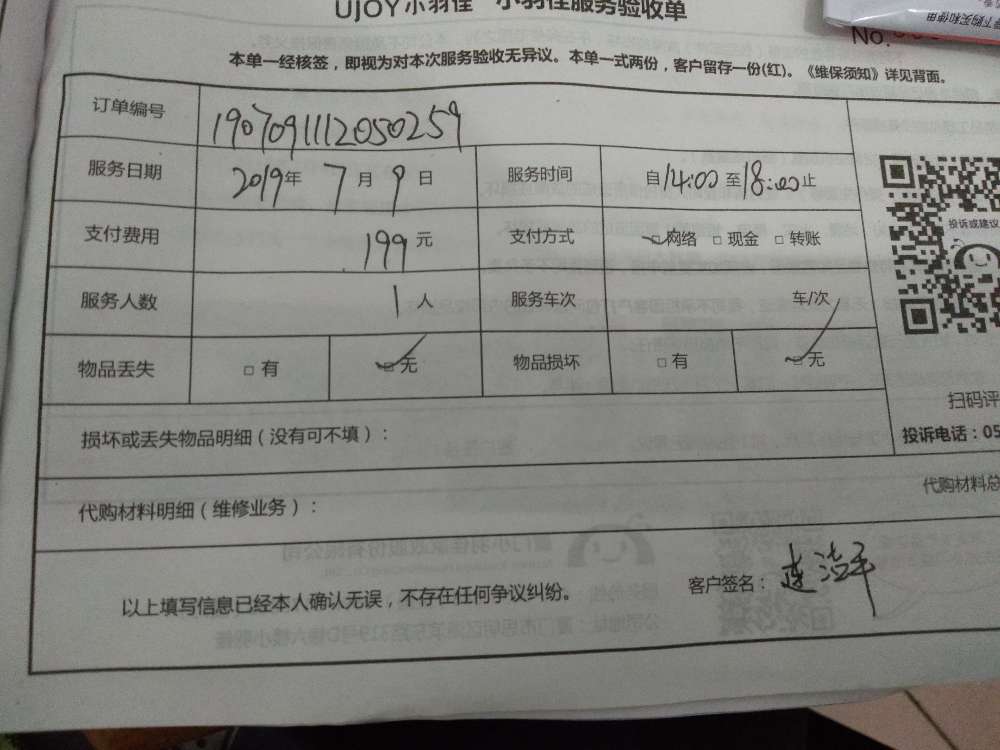 UJOY小羽佳 小羽佳服务验收单
No.
下购买和使用
本单一经核签，即视为对本次服务验收无异议。本单一式两份，客户留存一份(红)。《维保须知》详见背面。
订单编号 1907091112050259
服务日期 2019年 7月 9日 服务时间 自14:00至18:00止
支付费用 199元 支付方式 □网络 □现金 □转账
投诉或建议
服务人数 1人 服务车次 车/次
物品丢失 □有 □无 物品损坏 □有 □无
扫码评
损坏或丢失物品明细（没有可不填）：
投诉电话：05
代购材料明细（维修业务）：
代购材料总
以上填写信息已经本人确认无误，不存在任何争议纠纷。
客户签名：